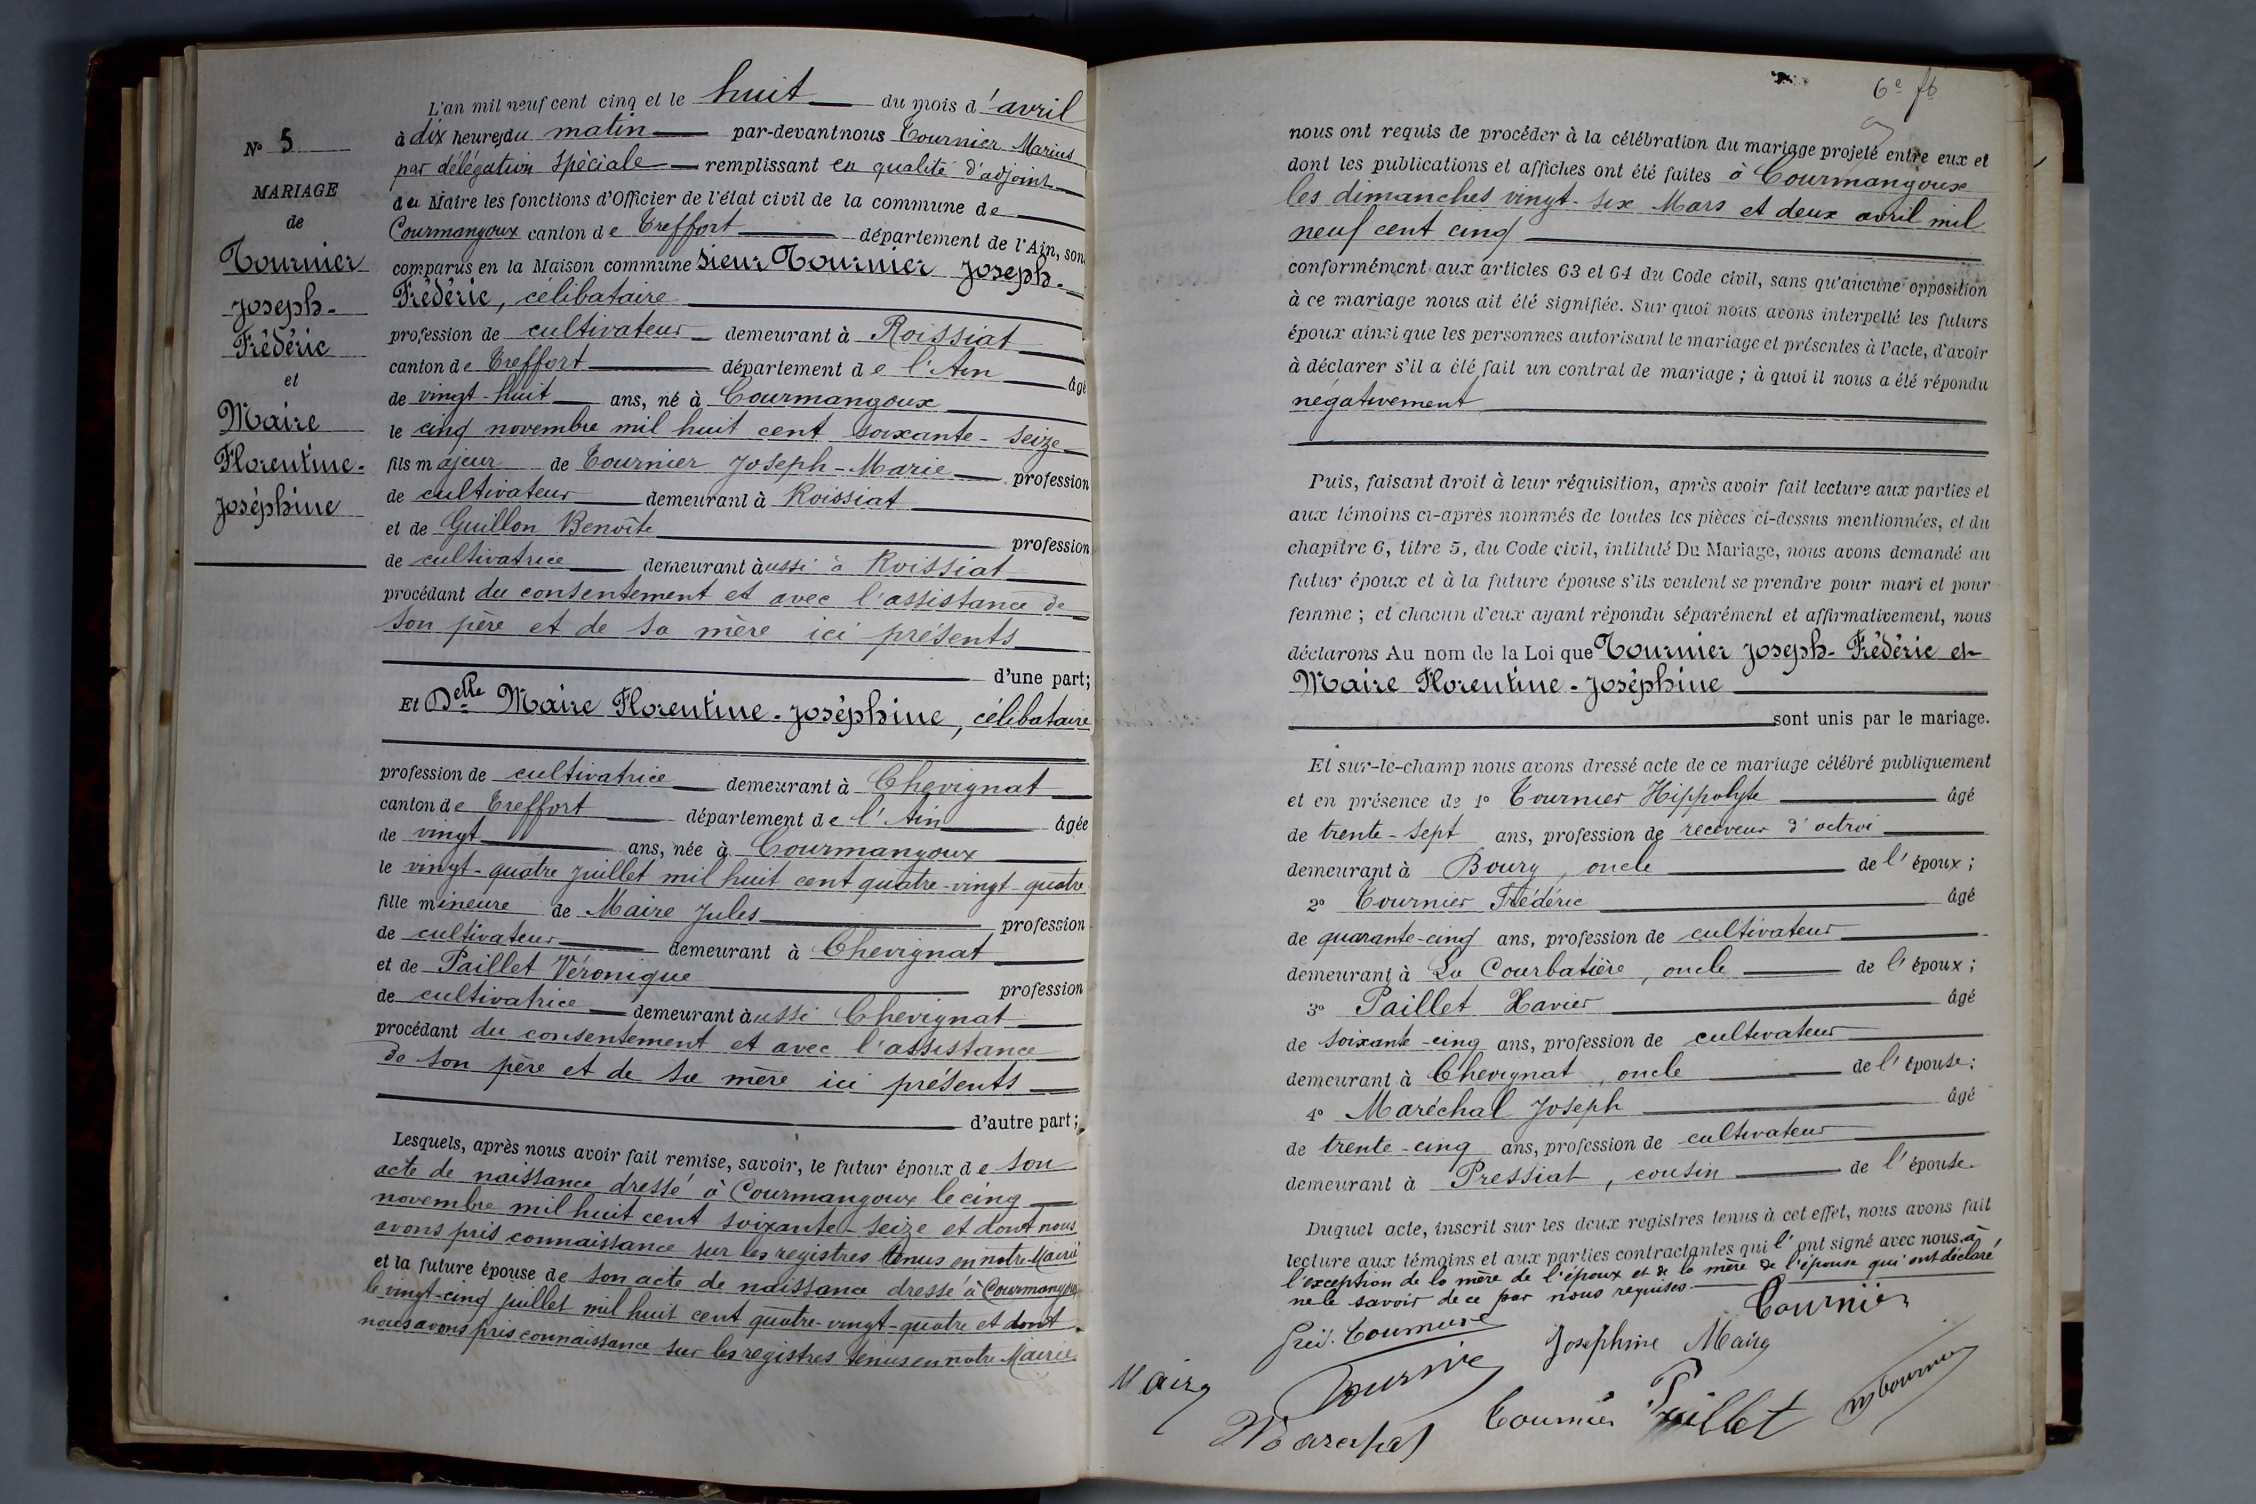 N° 5
MARIAGE
de
Tournier
Joseph-
Frédéric
et
Maire
Florentine-
Joséphine
L'an mil neuf cent cinq et le huit du mois d'avril
à dix heures du matin par-devant nous Tournier Marius
par délégation spéciale remplissant en qualité d'adjoint
au Maire les fonctions d'Officier de l'état civil de la commune de
Courmangoux canton de Treffort département de l'Ain, son
comparus en la Maison commune sieur Tournier Joseph-
Frédéric, célibataire
profession de cultivateur demeurant à Roissiat
canton de Treffort département de l'Ain âgé
de vingt-huit ans, né à Courmangoux
le cinq novembre mil huit cent soixante-seize
fils majeur de Tournier Joseph-Marie profession
de cultivateur demeurant à Roissiat
et de Guillon Benoîte profession
de cultivatrice demeurant aussi à Roissiat
procédant du consentement et avec l'assistance de
son père et de sa mère ici présents
d'une part;
Et Delle Maire Florentine-Joséphine, célibataire
profession de cultivatrice demeurant à Chevignat
canton de Treffort département de l'Ain âgée
de vingt ans, née à Courmangoux
le vingt-quatre juillet mil huit cent quatre-vingt-quatre
fille mineure de Maire Jules profession
de cultivateur demeurant à Chevignat
et de Paillet Véronique profession
de cultivatrice demeurant aussi Chevignat
procédant du consentement et avec l'assistance
de son père et de sa mère ici présents
d'autre part;
Lesquels, après nous avoir fait remise, savoir, le futur époux de son
acte de naissance dressé à Courmangoux le cinq
novembre mil huit cent soixante-seize et dont nous
avons pris connaissance sur les registres tenus en notre Mairie
et la future épouse de son acte de naissance dressé à Courmangoux
le vingt-cinq juillet mil huit cent quatre-vingt-quatre et dont
nous avons pris connaissance sur les registres tenus en notre Mairie
6e fo
nous ont requis de procéder à la célébration du mariage projeté entre eux et
dont les publications et affiches ont été faites à Courmangoux
les dimanches vingt-six Mars et deux avril mil
neuf cent cinq
conformément aux articles 63 et 64 du Code civil, sans qu'aucune opposition
à ce mariage nous ait été signifiée. Sur quoi nous avons interpellé les futurs
époux ainsi que les personnes autorisant le mariage et présentes à l'acte, d'avoir
à déclarer s'il a été fait un contrat de mariage; à quoi il nous a été répondu
négativement
Puis, faisant droit à leur réquisition, après avoir fait lecture aux parties et
aux témoins ci-après nommés de toutes les pièces ci-dessus mentionnées, et du
chapitre 6, titre 5, du Code civil, intitulé Du Mariage, nous avons demandé au
futur époux et à la future épouse s'ils veulent se prendre pour mari et pour
femme; et chacun d'eux ayant répondu séparément et affirmativement, nous
déclarons Au nom de la Loi que Tournier Joseph-Frédéric et
Maire Florentine-Joséphine
sont unis par le mariage.
Et sur-le-champ nous avons dressé acte de ce mariage célébré publiquement
et en présence de 1° Tournier Hippolyte âgé
de trente-sept ans, profession de receveur d'octroi
demeurant à Bourg, oncle de l'époux;
2° Tournier Frédéric âgé
de quarante-cinq ans, profession de cultivateur
demeurant à La Courbatière, oncle de l'époux;
3° Paillet Xavier âgé
de soixante-cinq ans, profession de cultivateur
demeurant à Chevignat, oncle de l'épouse;
4° Maréchal Joseph âgé
de trente-cinq ans, profession de cultivateur
demeurant à Pressiat, cousin de l'épouse.
Duquel acte, inscrit sur les deux registres tenus à cet effet, nous avons fait
lecture aux témoins et aux parties contractantes qui l'ont signé avec nous à
l'exception de la mère de l'époux et de la mère de l'épouse qui ont déclaré
ne le savoir de ce par nous requises.
Tournier
Joséphine Maire
Maire
Tournier
Maréchal
Tournier
Paillet